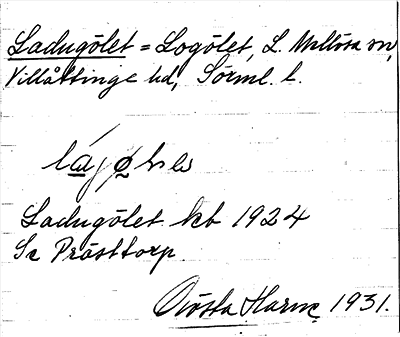 Ladugölet = Logölet, L. Mellösa sn,
Villåttinge hd, Sörml. l.
Ladugölet kb 1924
Se Prästtorp
Gösta Harne 1931.